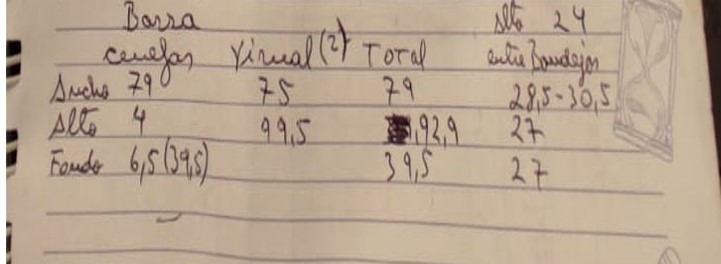 Barra Alto 24
cenefas Visual (2) Total entre Bandejas
Ancho 79 75 79 28,5-30,5
Alto 4 99,5 ,92,9 27
Fondo 6,5 (39,5) 39,5 27